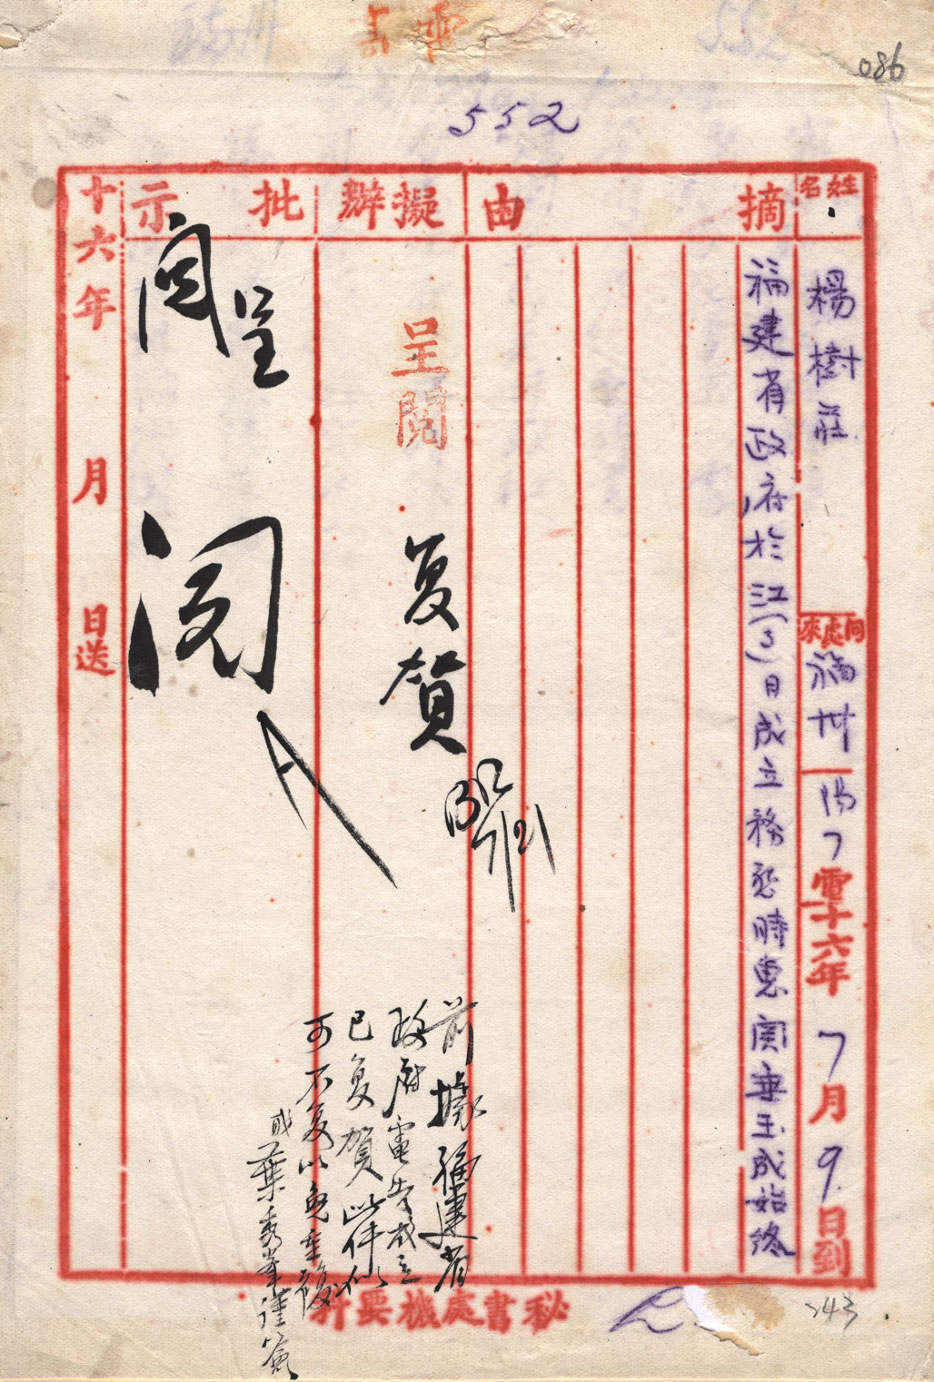 086
552
姓名
楊樹莊
何處來
福州
電十六年7月9日到
摘由
福建省政府於江(3)日成立務懇時惠閎垂玉成始終
擬辦
呈閱
复賀
前據福建省
政府電告成立
已复賀此件似
可不复以免重複
葉秀峯謹簽
批示
呈
閱
十六年 月 日送
秘書處機要科
243